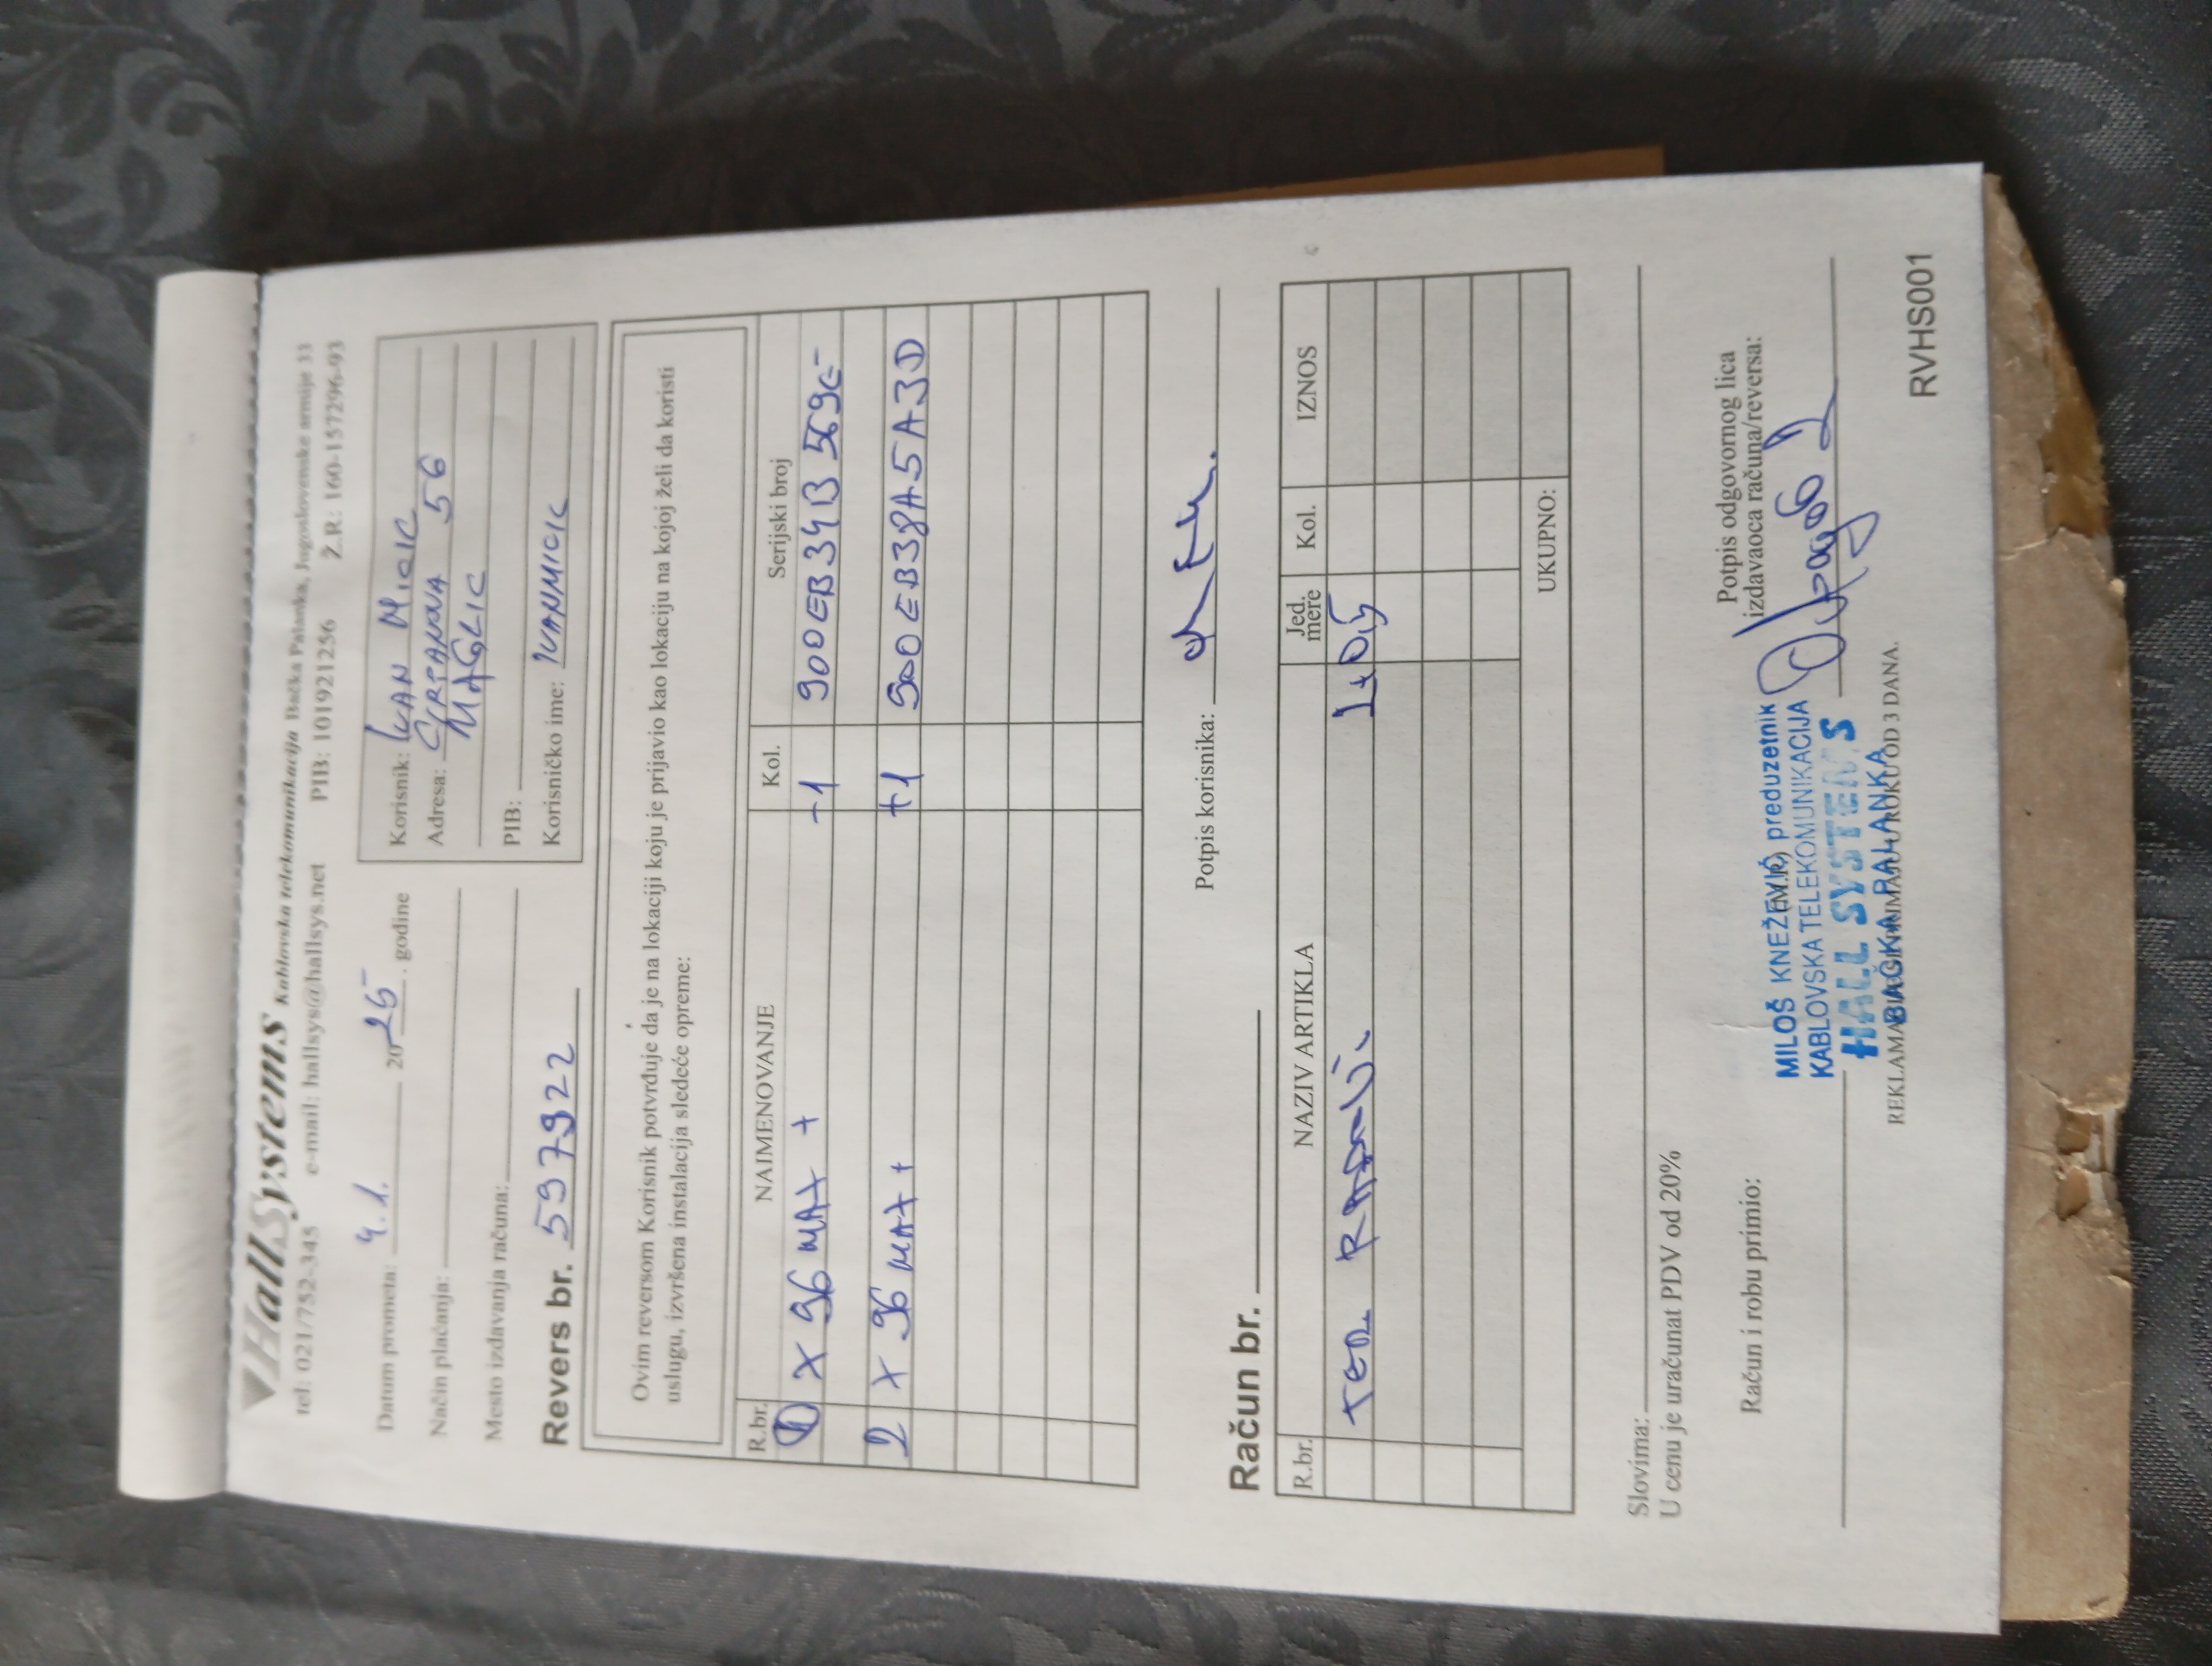 HallSystems Kablovska telekomunikacija Bačka Palanka, Jugoslovenske armije 33
tel: 021/752-345 e-mail: hallsys@hallsys.net PIB: 101921256 Ž.R: 160-157296-93
Datum prometa: 4.1. 2025. godine
Način plaćanja:
Mesto izdavanja računa:
Revers br. 597922
Korisnik: IVAN MICIC
Adresa: 56
MAGLIC
PIB:
Korisničko ime: IVANMICIC
Ovim reversom Korisnik potvrđuje da je na lokaciji koju je prijavio kao lokaciju na kojoj želi da koristi
uslugu, izvršena instalacija sledeće opreme:
R.br. NAIMENOVANJE Kol. Serijski broj
1 X96 MAX + -1 900EB34B569E
2 X96 MAX + +1 900EB38A5A3D
Potpis korisnika:
Račun br.
R.br. NAZIV ARTIKLA Jed. mere Kol. IZNOS
UKUPNO:
Slovima:
U cenu je uračunat PDV od 20%
Račun i robu primio:
Potpis odgovornog lica
izdavaoca računa/reversa:
(M.P.)
MILOŠ KNEŽEVIĆ preduzetnik
KABLOVSKA TELEKOMUNIKACIJA
HALL SYSTEMS
BAČKA PALANKA
REKLAMACIJE PRIMAMO U ROKU OD 3 DANA.
RVHS001